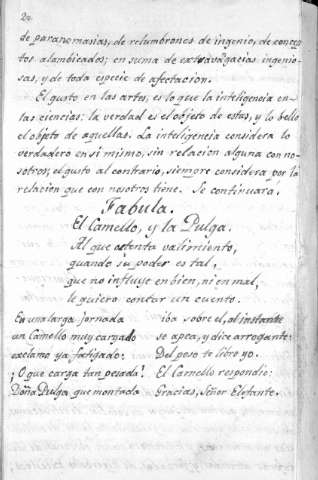 24
de paranomasias, de relumbrones de ingenio, de concep
tos alambicados; en suma de extravagacias ingenio-
sas, y de toda especie de afectacion.
El gusto en las artes, es lo que la inteligencia en-
las ciencias: la verdad es el objeto de estas, y lo bello
el objeto de aquellas. La inteligencia considera lo
verdadero en si mismo, sin relacion alguna con no-
sotros, el gusto al contrario, siempre considera por la
relacion que con nosotros tiene. Se continuara.
Fabula.
El Camello, y la Pulga.
Al que ostenta valimiento,
quando su poder es tal,
que no influye en bien, ni en mal,
le quiero contar un cuento.
En una larga jornada
un Camello muy cargado
exclamo ya fatigado:
¡O que carga tan pesada!
Doña Pulga que montada
iba sobre el, al instante
se apea, y dice arrogante:
Del peso te libro yo.
El Camello respondio:
Gracias, Señor Elefante.